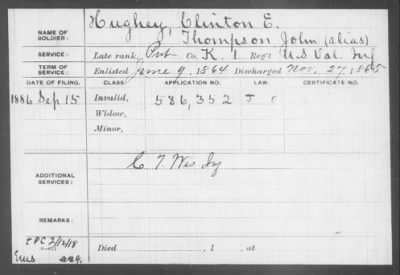 NAME OF SOLDIER: Hughey, Clinton E.
Thompson John (alias)
SERVICE: Late rank, Pvt Co. K, 1 Reg't U.S. Vol. Inf
TERM OF SERVICE: Enlisted June 9, 1864 Discharged Nov. 27, 1865
DATE OF FILING. CLASS. APPLICATION NO. LAW. CERTIFICATE NO.
1886 Sep 15 Invalid, 586,352 J
Widow,
Minor,
ADDITIONAL SERVICES: C. 7. Wis Inf
REMARKS:
2/12/18
Died , 1 , at